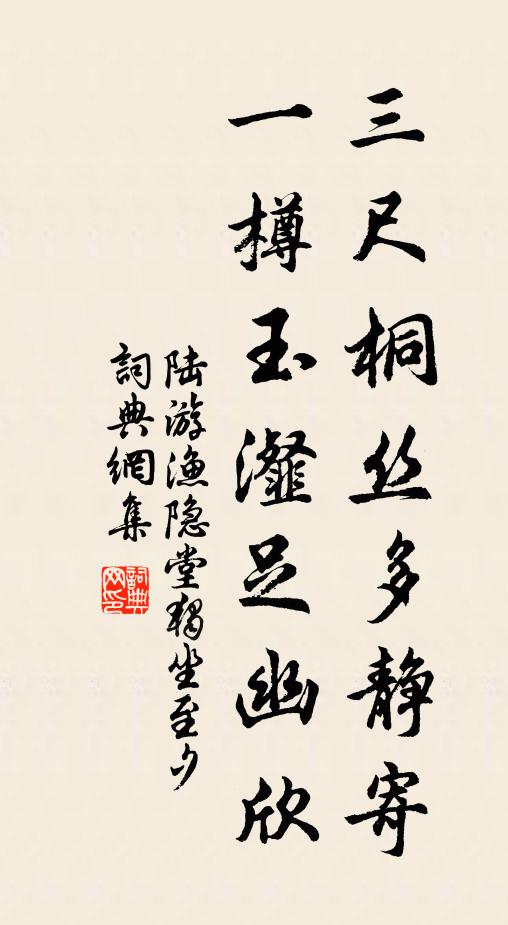 三尺桐丝多静寄
一樽玉瀣足幽欣
陆游渔隐堂獨坐至夕
詞典網集
詞典网印